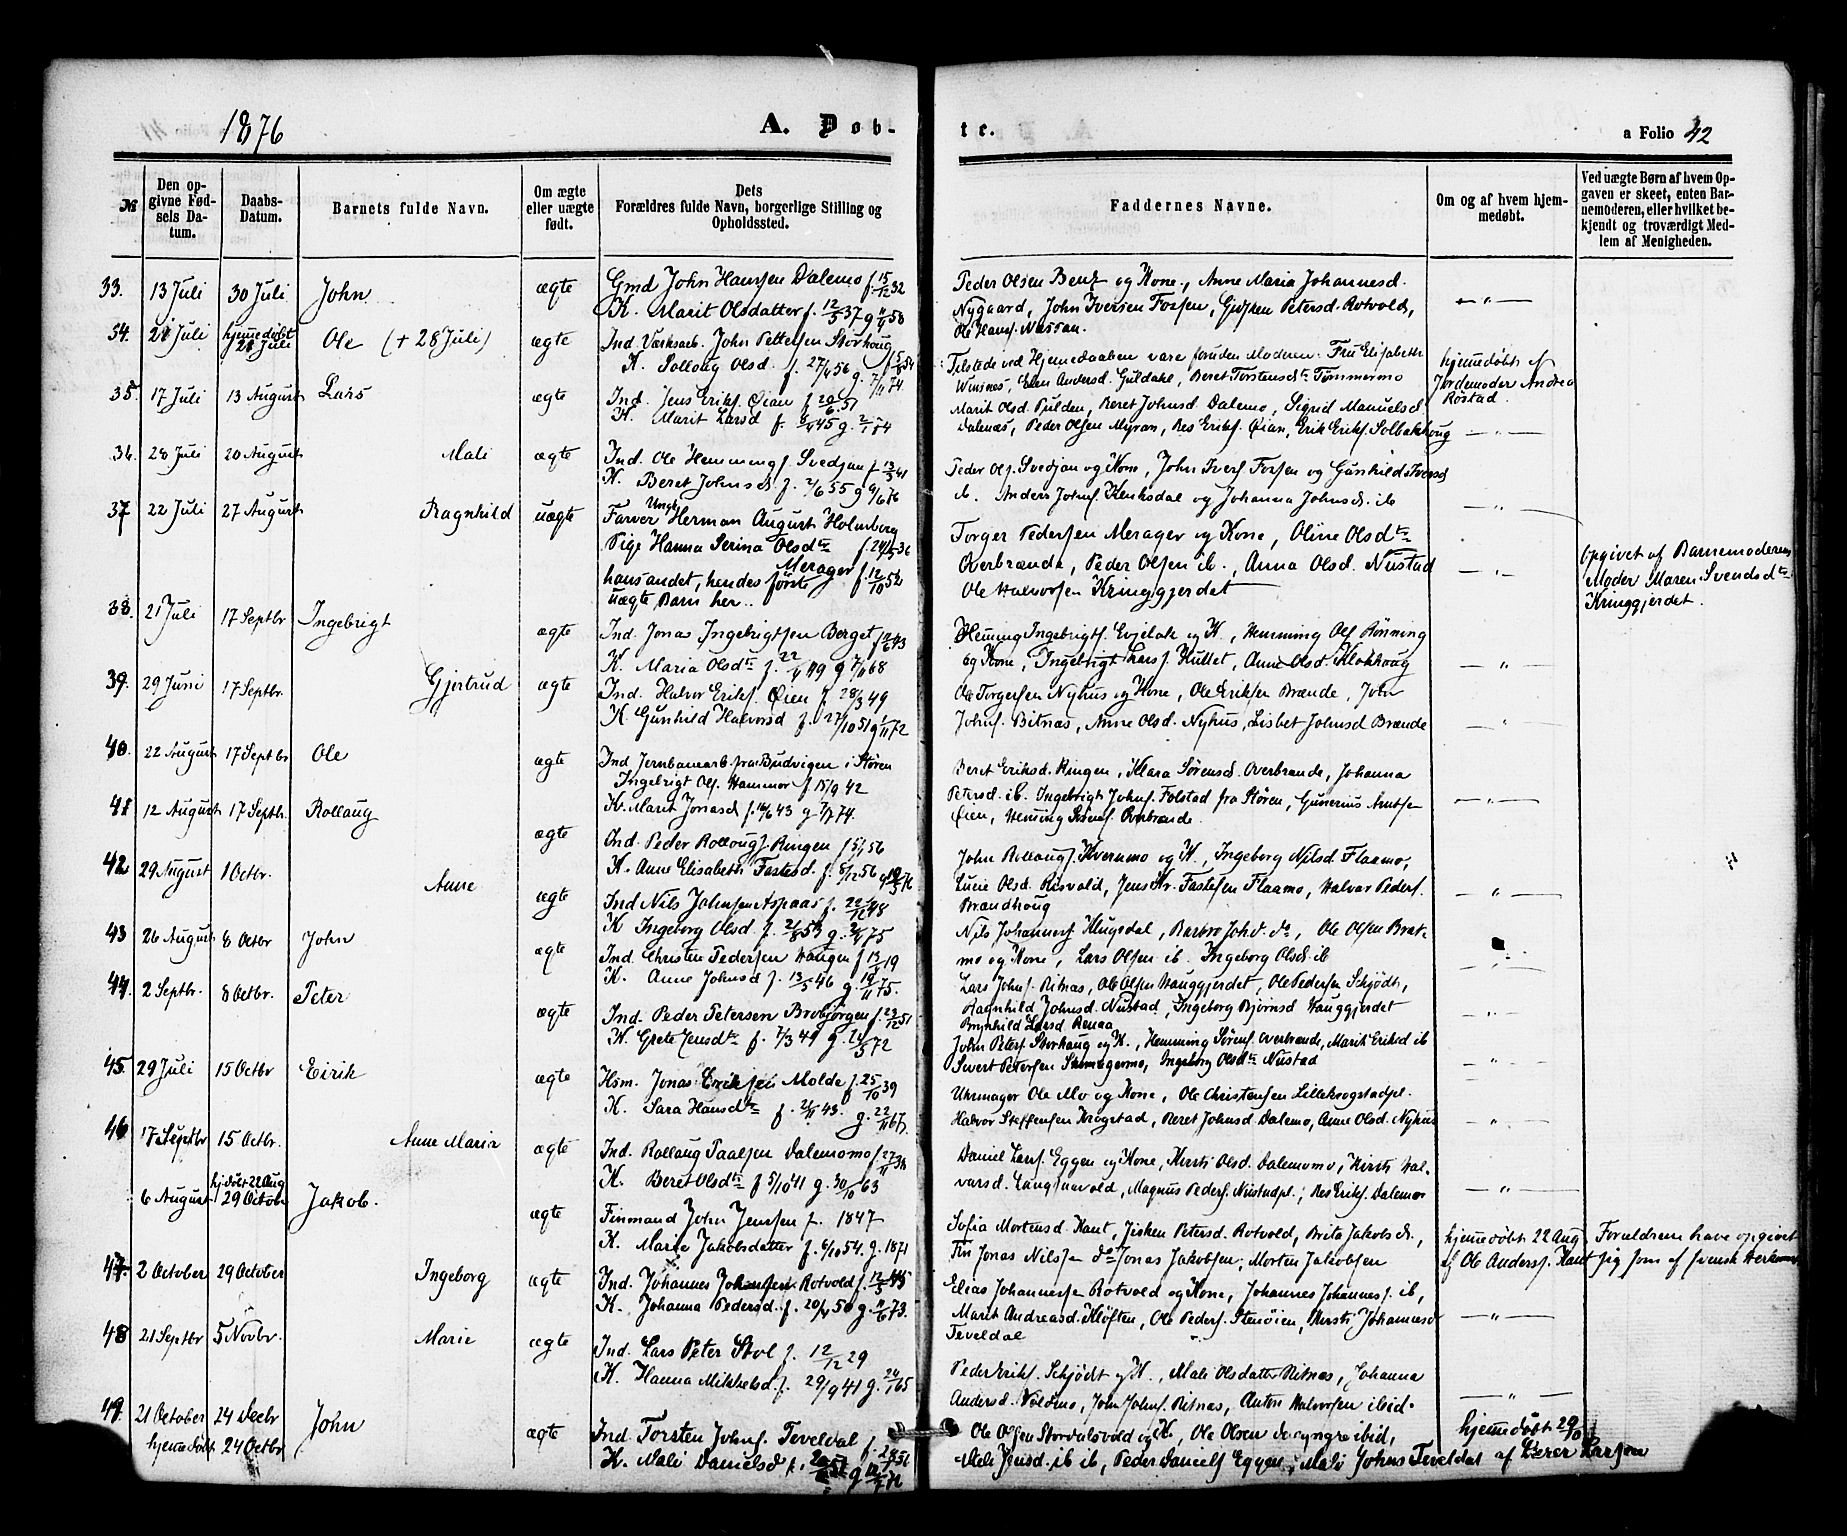 1876
A. Døb-
te.
a Folio 42
№
Den opgivne Fødsels Datum.
Daabs-Datum.
Barnets fulde Navn.
Om ægte eller uægte født.
Dets Forældres fulde Navn, borgerlige Stilling og Opholdssted.
Faddernes Navne.
Om og af hvem hjemmedøbt.
Ved uægte Børn af hvem Opgaven er skeet, enten Barnemoderen, eller hvilket bekjendt og troværdigt Medlem af Menigheden.
33. 13 Juli 30 Juli John ægte Gmd John Hanssen Dalemo f. 15/12 32
K. Marit Olsdatter f. 12/5 37
Peder Olsen Benz og Kone, Anne Maria Johannesd.
Nygaard, John Iversen Fossen, Petersd. Rotvold,
Ole Hans.
34. 21 Juli hjemmedøbt 21 Juli Ole (+ 28 Juli) ægte Ind. Værksarb. John Pettersen Storhoug
K. Sollaug Olsd. f. 27/4 56 g. 7/11 74.
Tilstede ved Hjemmedaaben vare foruden Moderen: Fru Elisabeth
Winsnes, Elen Andersd. Guldahl, Beret Torstensdtr Tømmermo
hjemmedøbt
Jordemoder Andrea
Røstad.
35. 17 Juli 13 August Lars ægte Ind. Jens Eriks. Øian f. 20/6 51
K. Marit Larsd f. 8/4 45 g. 2/1 74
Marit Olsd. Pulden, Beret Johnsd. Dalemo, Sigrid Manuelsd
Dalenæs, Peder Olsen Myran, Eriks. Øian, Erik Eriks. Solbakhoug
36. 28 Juli 20 August Mali ægte Ind. Ole Hemmings. Svedjan f. 13/3 41
K. Beret Johnsd. f. 2/6 55
Peder Ols. Svedjan og Kone, John Ivers. Fossen og Gunhild Iversd
ib. Anders Johns. og Johanna Johnsd. ib
37 22 Juli 27 August Ragnhild uægte Ungk. Farver Herman August Holmberg
Pige Hanna Serina Olsdtr f. 24/5 36
Merager f. 12/10 52
hans andet, hendes første
uægte Barn her.
Torger Pedersen Merager og Kone, Oline Olsdtr
Overbrænde, Peder Olsen ib., Anna Olsd. Nustad
Ole Halvorsen Kringgjerdet
Opgivet af Barnemoderens
Moder Maren Svendsdtr
Kringgjerdet.
38. 21 Juli 17 Septbr Ingebrigt ægte Ind. Jonas Ingebrigtsen Berget
K. Maria Olsdtr
Hemming Ingebrigts. og K., Hemming Ols. Rønning
og Kone, Ingebrigt Lars. Hullet, Anne Olsd. Klokhoug
39. 29 Juni 17 Septbr. Gjertrud ægte Ind. Halvor Eriks. Øien f. 28/3 49
K. Gunhild Halvorsd f. 27/10 51 g 1/11 72
Ole Torgersen Nyhus og Kone, Ole Eriksen Brænde, John
Johns. Bitnæs, Anne Olsd. Nyhus, Lisbet Johnsd Brænde
40. 22 August 17 Septbr Ole ægte Ind Jernbanearb. fra Budvigen i Støren
Ingebrigt Ols. Hammer f. 15/9 42
K. Marit Jonasd f. 16/6 43 g 7/7 74.
Beret Eriksd. Ringen, Klara Sørensd. Overbrænde, Johanna
Petersd. ib. Ingebrigt Johns. Folstad fra Støren, Gunerius Arntsen
Øien, Hemming Sørens. Overbrænde.
41 12 August 17 Septbr. Rollaug ægte Ind. Peder Rollougs. Ringen
K. Anne Elisabeth Fastesd. f. 8/12 56
John Rollougs. Kvernmo og K., Ingeborg Nilsd Flaamo,
Lucie Olsd. Risvold, Jens Kr. Fastesen Flaamo, Halvor Peders.
Brændhoug
42 29 August 1 Octbr. Anne ægte Ind Nils Johnsen Aspaas f. 22/12 48
K Ingeborg Olsd. f. 2/8 53
Nils Johanness Klugsdal, Barbro dtr, Ole Olsen Brat-
mo og Kone, Lars Olsen ib. Ingeborg Olsd. ib
43 26 August 8 Octbr John ægte Ind. Christen Pedersen Haugen
K. Anne Johnsd f. 13/5 46 g. 19/11 75.
Lars Johns. Ritnæs, Ole Olsen Hauggjerdet, Ole Pedersen Schjødt,
Ragnhild Johnsd. Nustad, Ingeborg Bjørnsd Hauggjerdet
Brynhild Larsd Renaa
44. 2 Septbr. 8 Octbr. Peter ægte Ind. Peder Petersen Brobjørgen f. 23/12 51
K. Grete Jensdtr f. 7/3 49
John Peters. Storhaug og K., Hemming Sørens. Overbrænde, Marit Eriksd ib
Sivert Petersen, Ingeborg Olsdtr Nustad
45. 29 Juli 15 Octbr Eirik ægte Hsm. Jonas Eriksen Molde f. 25/10 39
K. Sara Hansdtr f. 2/11 43. g. 22/11 67.
Uhrmager Ole Mo og Kone, Ole Christensen Lillekrogstadpl.
Halvor Steffensen Krogstad, Beret Johnsd. Dalemo, Anne Olsd. Nyhus
46 17 Septbr 15 Octbr. Anne Maria ægte Ind. Rollaug Paalsen Dalemomo
K. Beret Olsdtr f 5/10 41 g. 30/10 63
Daniel Lars. Eggen og Kone, Kirsti Olsd. Dalemomo, Kirsti Hal-
varsd. Langnavold, Magnus Peders. Nustadpl., Eriks. Dalemo
6 August hj.døbt 22 Aug 29 October Jakob. ægte Finmand John Jenssen f. 1847
K. Marie Jakobsdatter f. 6/10 54. g. 1871
Sofia Mortensd. Kant, Petersd. Rotvold, Brita Jakobsd.,
Fin Jonas Nilssen, do Jonas Jakobsen, Morten Jakobsen
hjemmedøbt 22 Aug
af Ole Anderss. Kant
Forældrene have opgivet
sig som af svensk Herkomst
47. 2 October 29 October Ingeborg ægte Ind. Johannes Johansen Rotvold f. 12/5 45
K. Johanna Pedersd. f. 20/4 50 g. 11/6 73.
Elias Johannessen Rotvold og Kone, Johannes Johanness. ib,
Marit Andreasd. Kløften, Ole Peders. Stenøien, Kirsti Johannesd
Teveldal
48 21 Septbr 5 Novbr. Marie ægte Ind. Lars Peter Stol f. 12/12 29
K. Hanna Mikkelsd. f. 29/9 41 g. 20/1 65
Peder Eriks. Schjødt og K., Mali Olsdatter Ritnæs, Johanna
Andersd. Voldmo, John Johns. Ritnæs, Anton Halvorsen ibid-
49. 21 October 24 Decbr John ægte Ind. Torsten Johns. Teveldal
hjemmedøbt 24 Octbr
K. Mali Danielsd
Ole Olsen Stordalsvold og K., Ole Olsen den yngre ibid,
Mali Jensd. ib ib, Peder Daniels Eggen, Mali Johns Teveldal
hjemmedøbt 29/10
af Peter Larsen